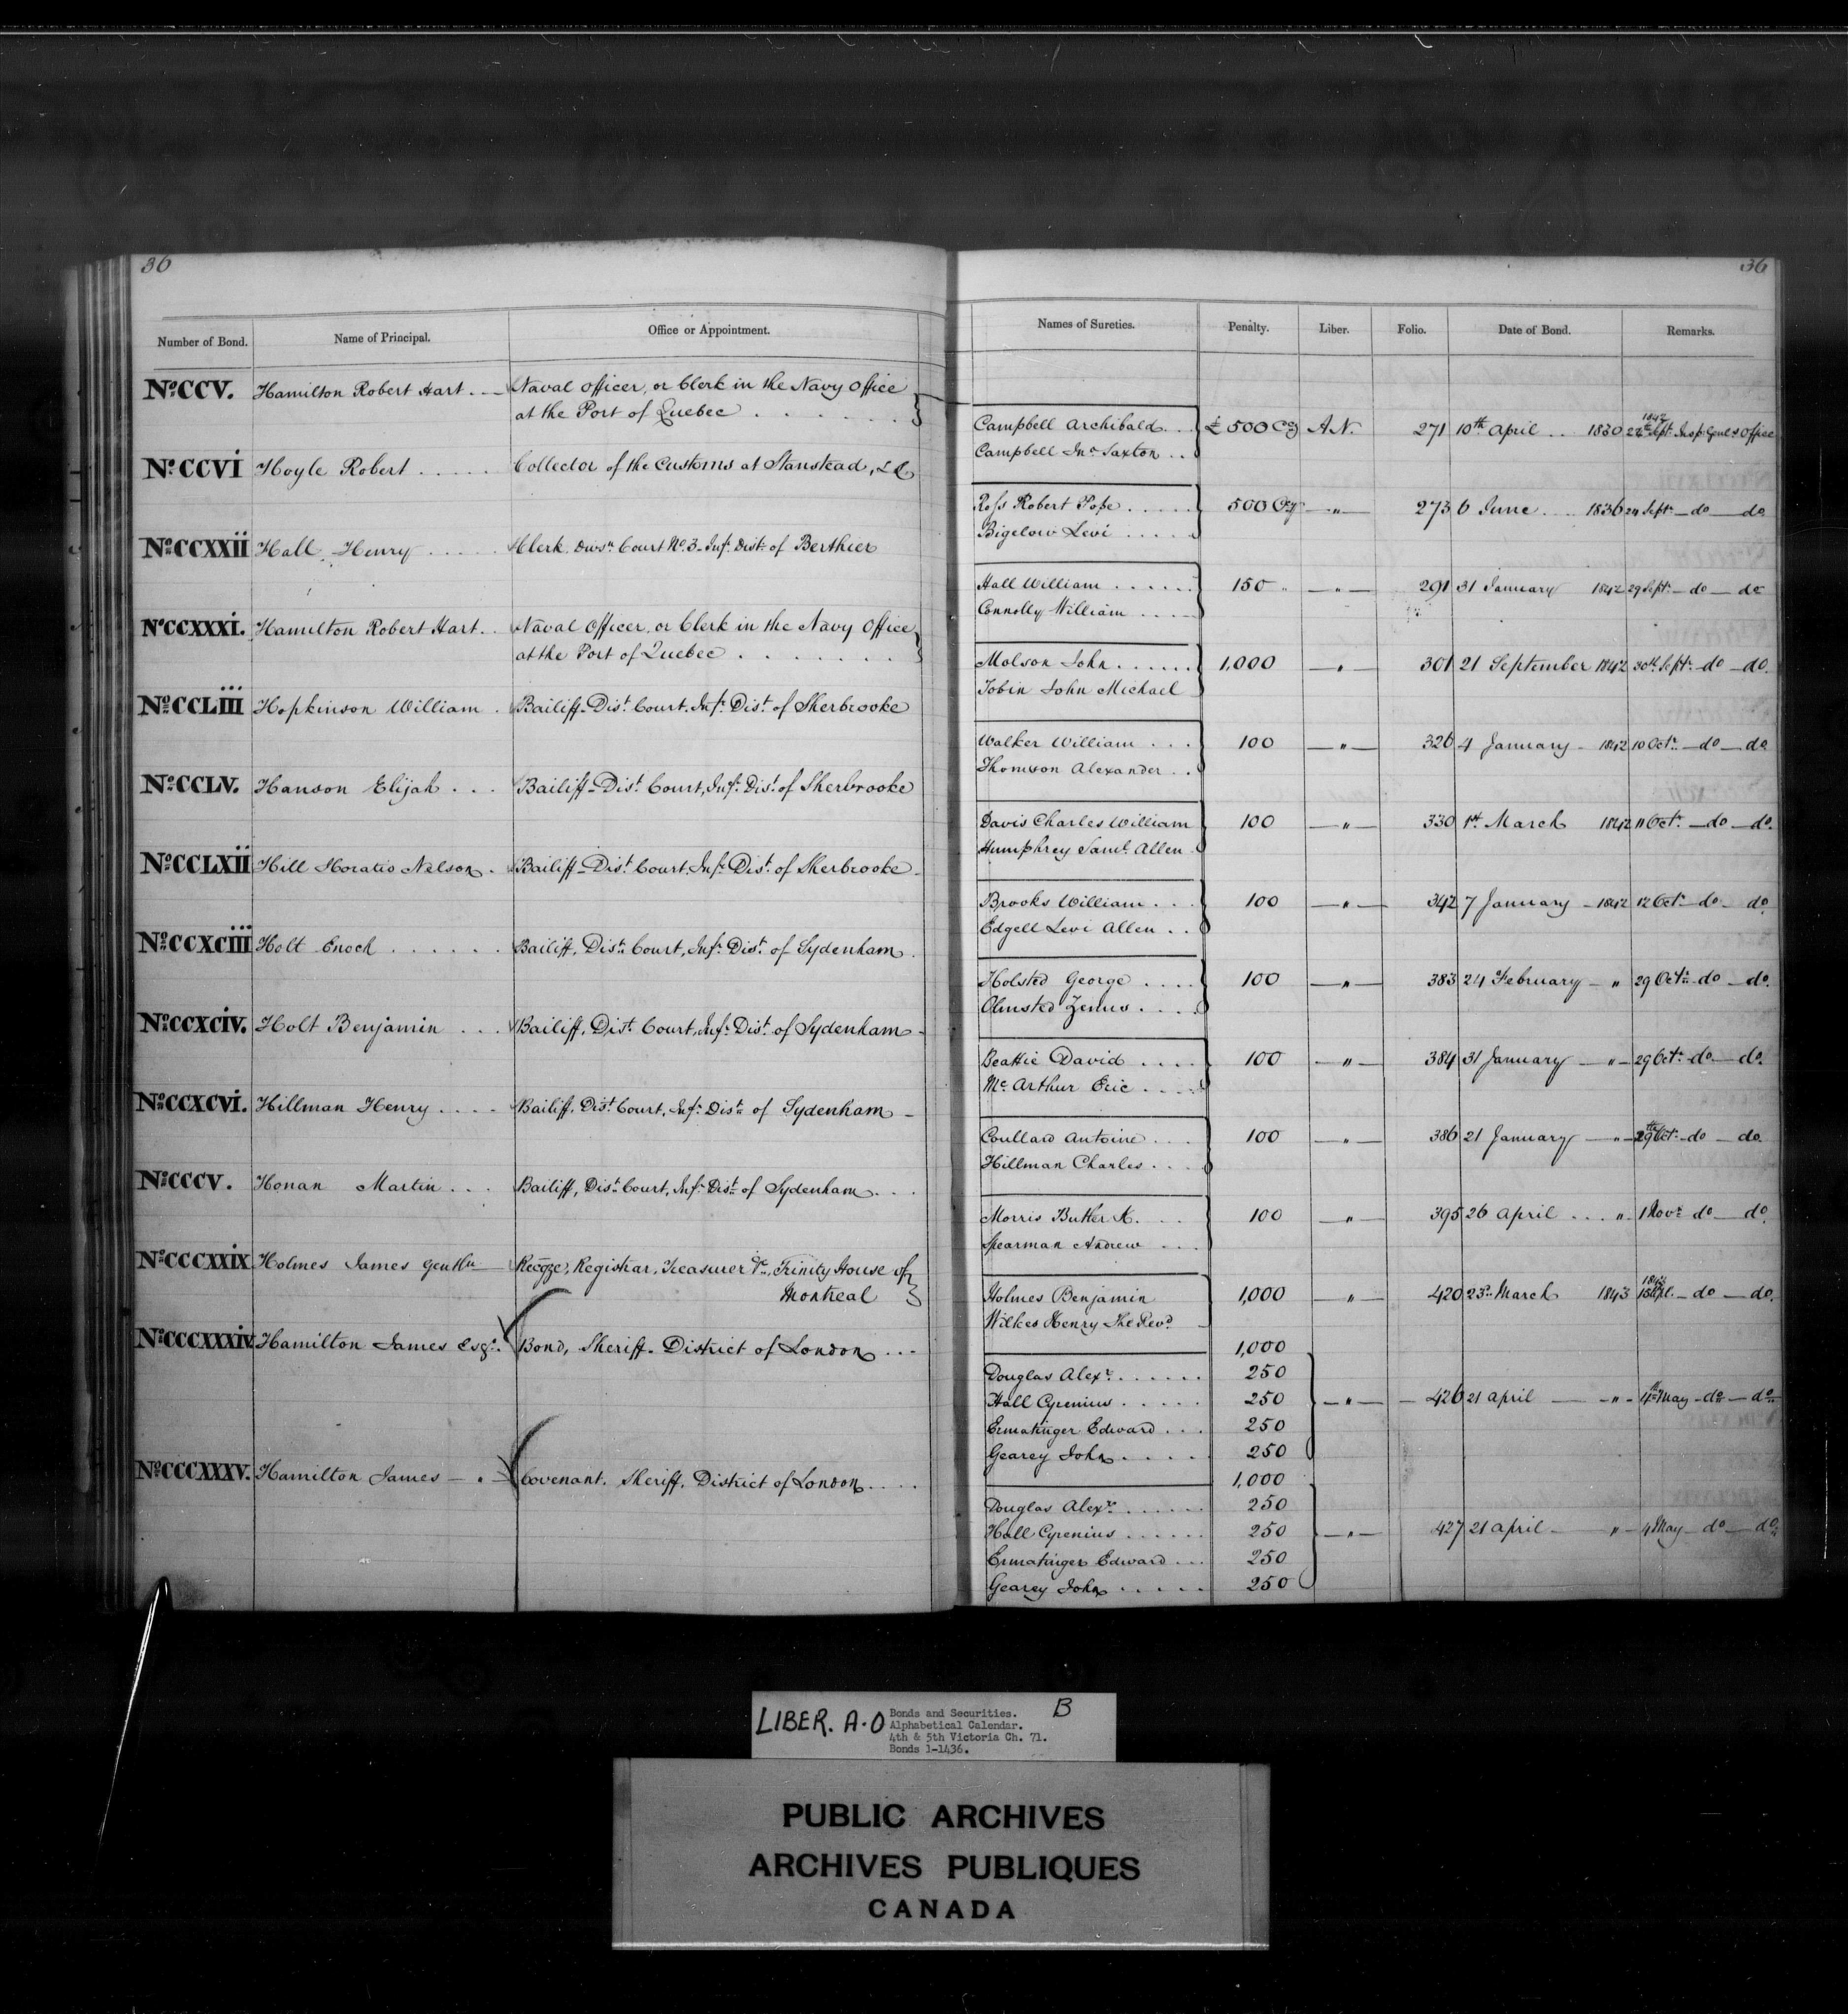 36
Number of Bond. Name of Principal. Office or Appointment.
No. CCV. Hamilton Robert Hart . — Naval Officer, or Clerk in the Navy Office
at the Port of Quebec . . . . . .
No. CCVi Hoyle Robert . . . . . Collector of the Customs at Stanstead, L C
No. CCXXii Hall Henry . . . . . Clerk Divsn. Court No. 3 - Infr. Dist. of Berthier
No. CCXXXi. Hamilton Robert Hart . . Naval Officer, or Clerk in the Navy Office
at the Port of Quebec . . . . . . .
No. CCLiii Hopkinson William . Bailiff - Dist. Court. Infr. Dist. of Sherbrooke
No. CCLV. Hanson Elijah . . . Bailiff - Dist. Court, Infr. Dist. of Sherbrooke
No. CCLXii Hill Horatio Nelson . Bailiff - Dist. Court. Infr. Dist. of Sherbrooke
No. CCXCiii Holt Enoch . . . . . . Bailiff, Dist. Court, Infr. Dist. of Sydenham .
No. CCXCiv. Holt Benjamin . . . Bailiff, Dist. Court, Infr. Dist. of Sydenham -
No. CCXCVi. Hillman Henry . . . . Bailiff, Dist. Court, Infr. Dist. of Sydenham -
No. CCCV. Honan Martin . . . Bailiff, Dist. Court, Infr. Dist. of Sydenham . . .
No. CCCXXiX Holmes James Gentln — Recogze, Registrar, Treasurer &c., Trinity House of
Montreal
No. CCCXXXiV. Hamilton James Esqr. Bond, Sheriff - District of London . . .
No. CCCXXXV. Hamilton James — " — Covenant. Sheriff, District of London . . . .
36
Names of Sureties. Penalty. Liber. Folio. Date of Bond. Remarks.
Campbell Archibald . . . £ 500 Cy A.N. 271 10th April . . 1830 1842 Sept. Insp. Genls Office
Campbell Jno. Saxton . .
Ross Robert Pope . . . . . 500 Cy — " — 273 6 June . . . 1836 24 Sept. — do — do
Bigelow Levi . . . . .
Hall William . . . . . . 150 " — " — 291 31 January 1842 29 Sept. — do — do
Connolly William . . . .
Molson John . . . . . . 1,000 — " — 301 21 September 1842 30th Sept. — do — do.
Tobin John Michael
Walker William . . . 100 — " — 326 4 January - 1842 10 Octr. — do — do
Thomson Alexander . .
Davis Charles William 100 — " — 330 1st. March 1842 11 Octr. — do — do.
Humphrey Saml. Allen .
Brooks William . . . 100 — " — 342 7 January - 1842 12 Octr. — do - do.
Edgell Levi Allen . .
Holsted George . . . . 100 — " — 383 24 February - " 29 Octr. - do - do.
Olmsted Zenus . . . .
Beattie David . . . . 100 — " — 384 31 January — " — 29 Octr. - do — do.
Mc. Arthur Eric . . . .
Coullard Antoine . . . 100 — " — 386 21 January — " — 29th Oct. - do — do.
Hillman Charles . . .
Morris Butler A. . . . 100 — " — 395 26 April . . . " - 1 Novr. do — do.
Spearman Andrew . . .
Holmes Benjamin 1,000 — " — 420 23rd. March 1843 1843 Apl. — do — do.
Wilkes Henry The Revd.
1,000
Douglas Alexr. . . . . . . 250
Hall Cyrenius . . . . . 250 — " — 426 21 April — " — 4th May - do — do
Ermatinger Edward . . . 250
Gearey John . . . . . 250
1,000
Douglas Alexr. . . . . . . 250
Hall Cyrenius . . . . . . 250 — " — 427 21 April — " — 4 May — do — do.
Ermatinger Edward . . . 250
Gearey John . . . . . 250
LIBER. A.O Bonds and Securities. B
Alphabetical Calendar.
4th & 5th Victoria Ch. 71.
Bonds 1-1436.
PUBLIC ARCHIVES
ARCHIVES PUBLIQUES
CANADA